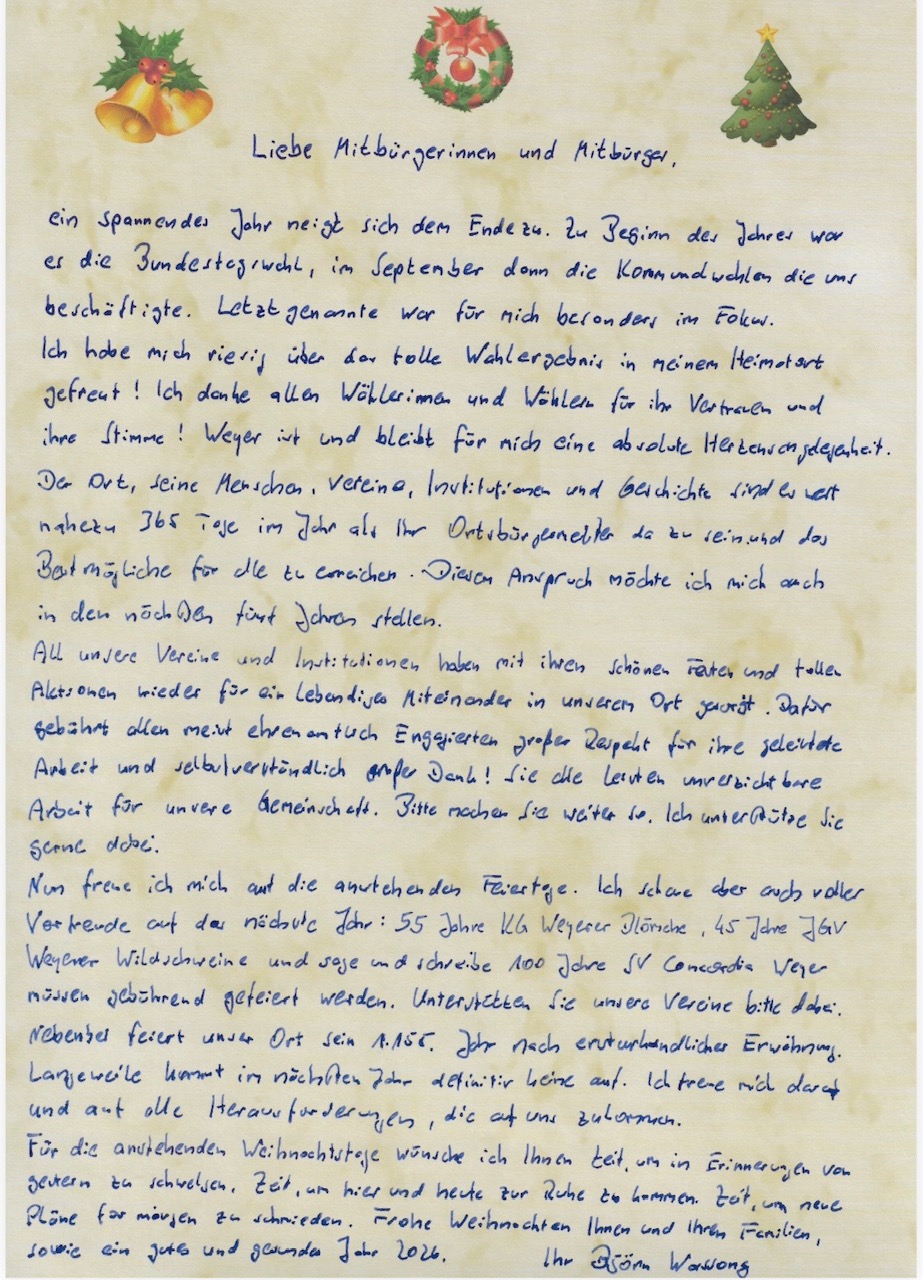 Liebe Mitbürgerinnen und Mitbürger,
ein spannendes Jahr neigt sich dem Ende zu. Zu Beginn des Jahres war
es die Bundestagswahl, im September dann die Kommunalwahlen die uns
beschäftigte. Letztgenannte war für mich besonders im Fokus.
Ich habe mich riesig über das tolle Wahlergebnis in meinem Heimatort
gefreut! Ich danke allen Wählerinnen und Wählern für ihr Vertrauen und
ihre Stimme! Weyer ist und bleibt für mich eine absolute Herzensangelegenheit.
Der Ort, seine Menschen, Vereine, Institutionen und Geschichte sind es wert
nahezu 365 Tage im Jahr als Ihr Ortsbürgermeister da zu sein und das
Bestmögliche für alle zu erreichen. Diesem Anspruch möchte ich mich auch
in den nächsten fünf Jahren stellen.
All unsere Vereine und Institutionen haben mit ihren schönen Festen und tollen
Aktionen wieder für ein lebendiges Miteinander in unserem Ort gesorgt. Dafür
gebührt allen meist ehrenamtlich Engagierten großer Respekt für ihre geleistete
Arbeit und selbstverständlich großer Dank! Sie alle leisten unverzichtbare
Arbeit für unsere Gemeinschaft. Bitte machen Sie weiter so. Ich unterstütze Sie
gerne dabei.
Nun freue ich mich auf die anstehenden Feiertage. Ich schaue aber auch voller
Vorfreude auf das nächste Jahr: 55 Jahre KG Weyerer Blötsche, 45 Jahre JGV
Weyerer Wildschweine und sage und schreibe 100 Jahre SV Concordia Weyer
müssen gebührend gefeiert werden. Unterstützen Sie unsere Vereine bitte dabei.
Nebenbei feiert unser Ort sein 1.155. Jahr nach ersturkundlicher Erwähnung.
Langeweile kommt im nächsten Jahr definitiv keine auf. Ich freue mich darauf
und auf alle Herausforderungen, die auf uns zukommen.
Für die anstehenden Weihnachtstage wünsche ich Ihnen Zeit, um in Erinnerungen von
gestern zu schwelgen. Zeit, um hier und heute zur Ruhe zu kommen. Zeit, um neue
Pläne für morgen zu schmieden. Frohe Weihnachten Ihnen und Ihren Familien,
sowie ein gutes und gesundes Jahr 2026. Ihr Björn Wassong